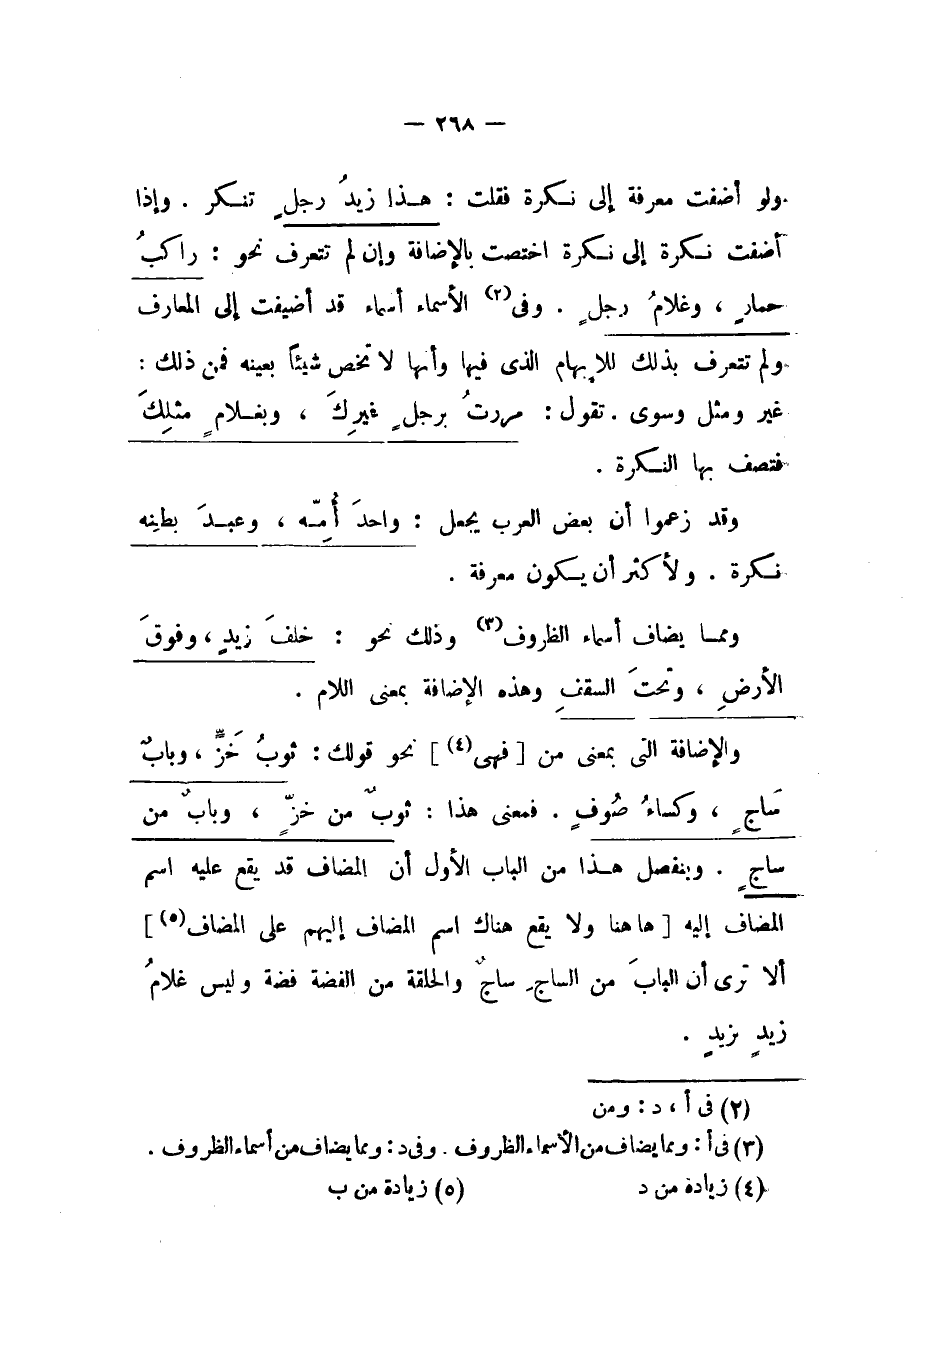 — ٢٦٨ —
ولو أضفت معرفة إلى نكرة فقلت : هذا زيدُ رجلٍ تنكر . وإذا
أضفت نكرة إلى نكرة اختصت بالإضافة وإن لم تتعرف نحو : راكبُ
حمارٍ ، وغلامُ رجلٍ . وفى(٢) الأسماء أسماء قد أضيفت إلى المعارف
ولم تتعرف بذلك للإبهام الذى فيها وأنها لا تخص شيئاً بعينه فمن ذلك :
غير ومثل وسوى . تقول : مررتُ برجلٍ غيرِكَ ، وبغلامٍ مثلِكَ
فتصف بها النكرة .
وقد زعموا أن بعض العرب يجعل : واحدَ أُمِّه ، وعبدَ بطنِه
نكرة . ولأكثر أن يكون معرفة .
ومما يضاف أسماء الظروف(٣) وذلك نحو : خلفَ زيدٍ ، وفوقَ
الأرضِ ، وتحتَ السقفِ وهذه الإضافة بمعنى اللام .
والإضافة التى بمعنى من [ فهى(٤) ] نحو قولك : ثوبُ خَزٍّ ، وبابُ
سَاجٍ ، وكساءُ صُوفٍ . فمعنى هذا : ثوبٌ من خزٍّ ، وبابٌ من
ساجٍ . وينفصل هذا من الباب الأول أن المضاف قد يقع عليه اسم
المضاف إليه [ هاهنا ولا يقع هناك اسم المضاف إليهم على المضاف(٥) ]
ألا ترى أن البابَ من الساجِ ساجٌ والحلقة من الفضة فضة وليس غلامُ
زيدٍ بزيدٍ .
(٢) فى أ ، د : ومن
(٣) فى أ : ومما يضاف من الأسماء الظروف . وفى د : ومما يضاف من أسماء الظروف .
(٤) زيادة من د (٥) زيادة من ب